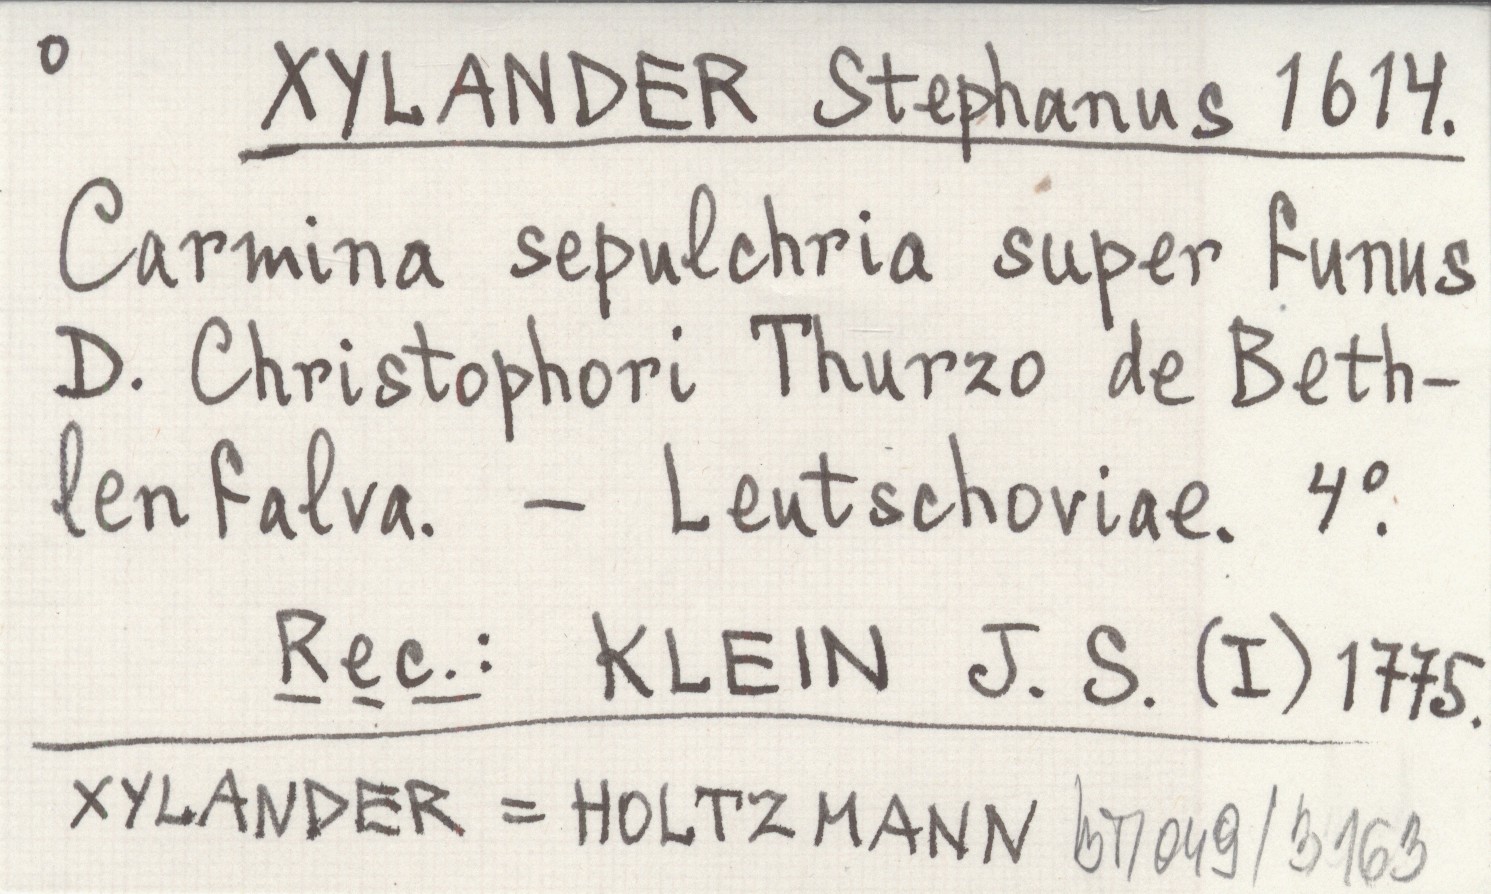 o XYLANDER Stephanus 1614.
Carmina sepulchria super funus
D. Christophori Thurzo de Beth-
lenfalva. - Leutschoviae. 4º.
Rec.: KLEIN J. S. (I) 1775.
XYLANDER = HOLTZMANN